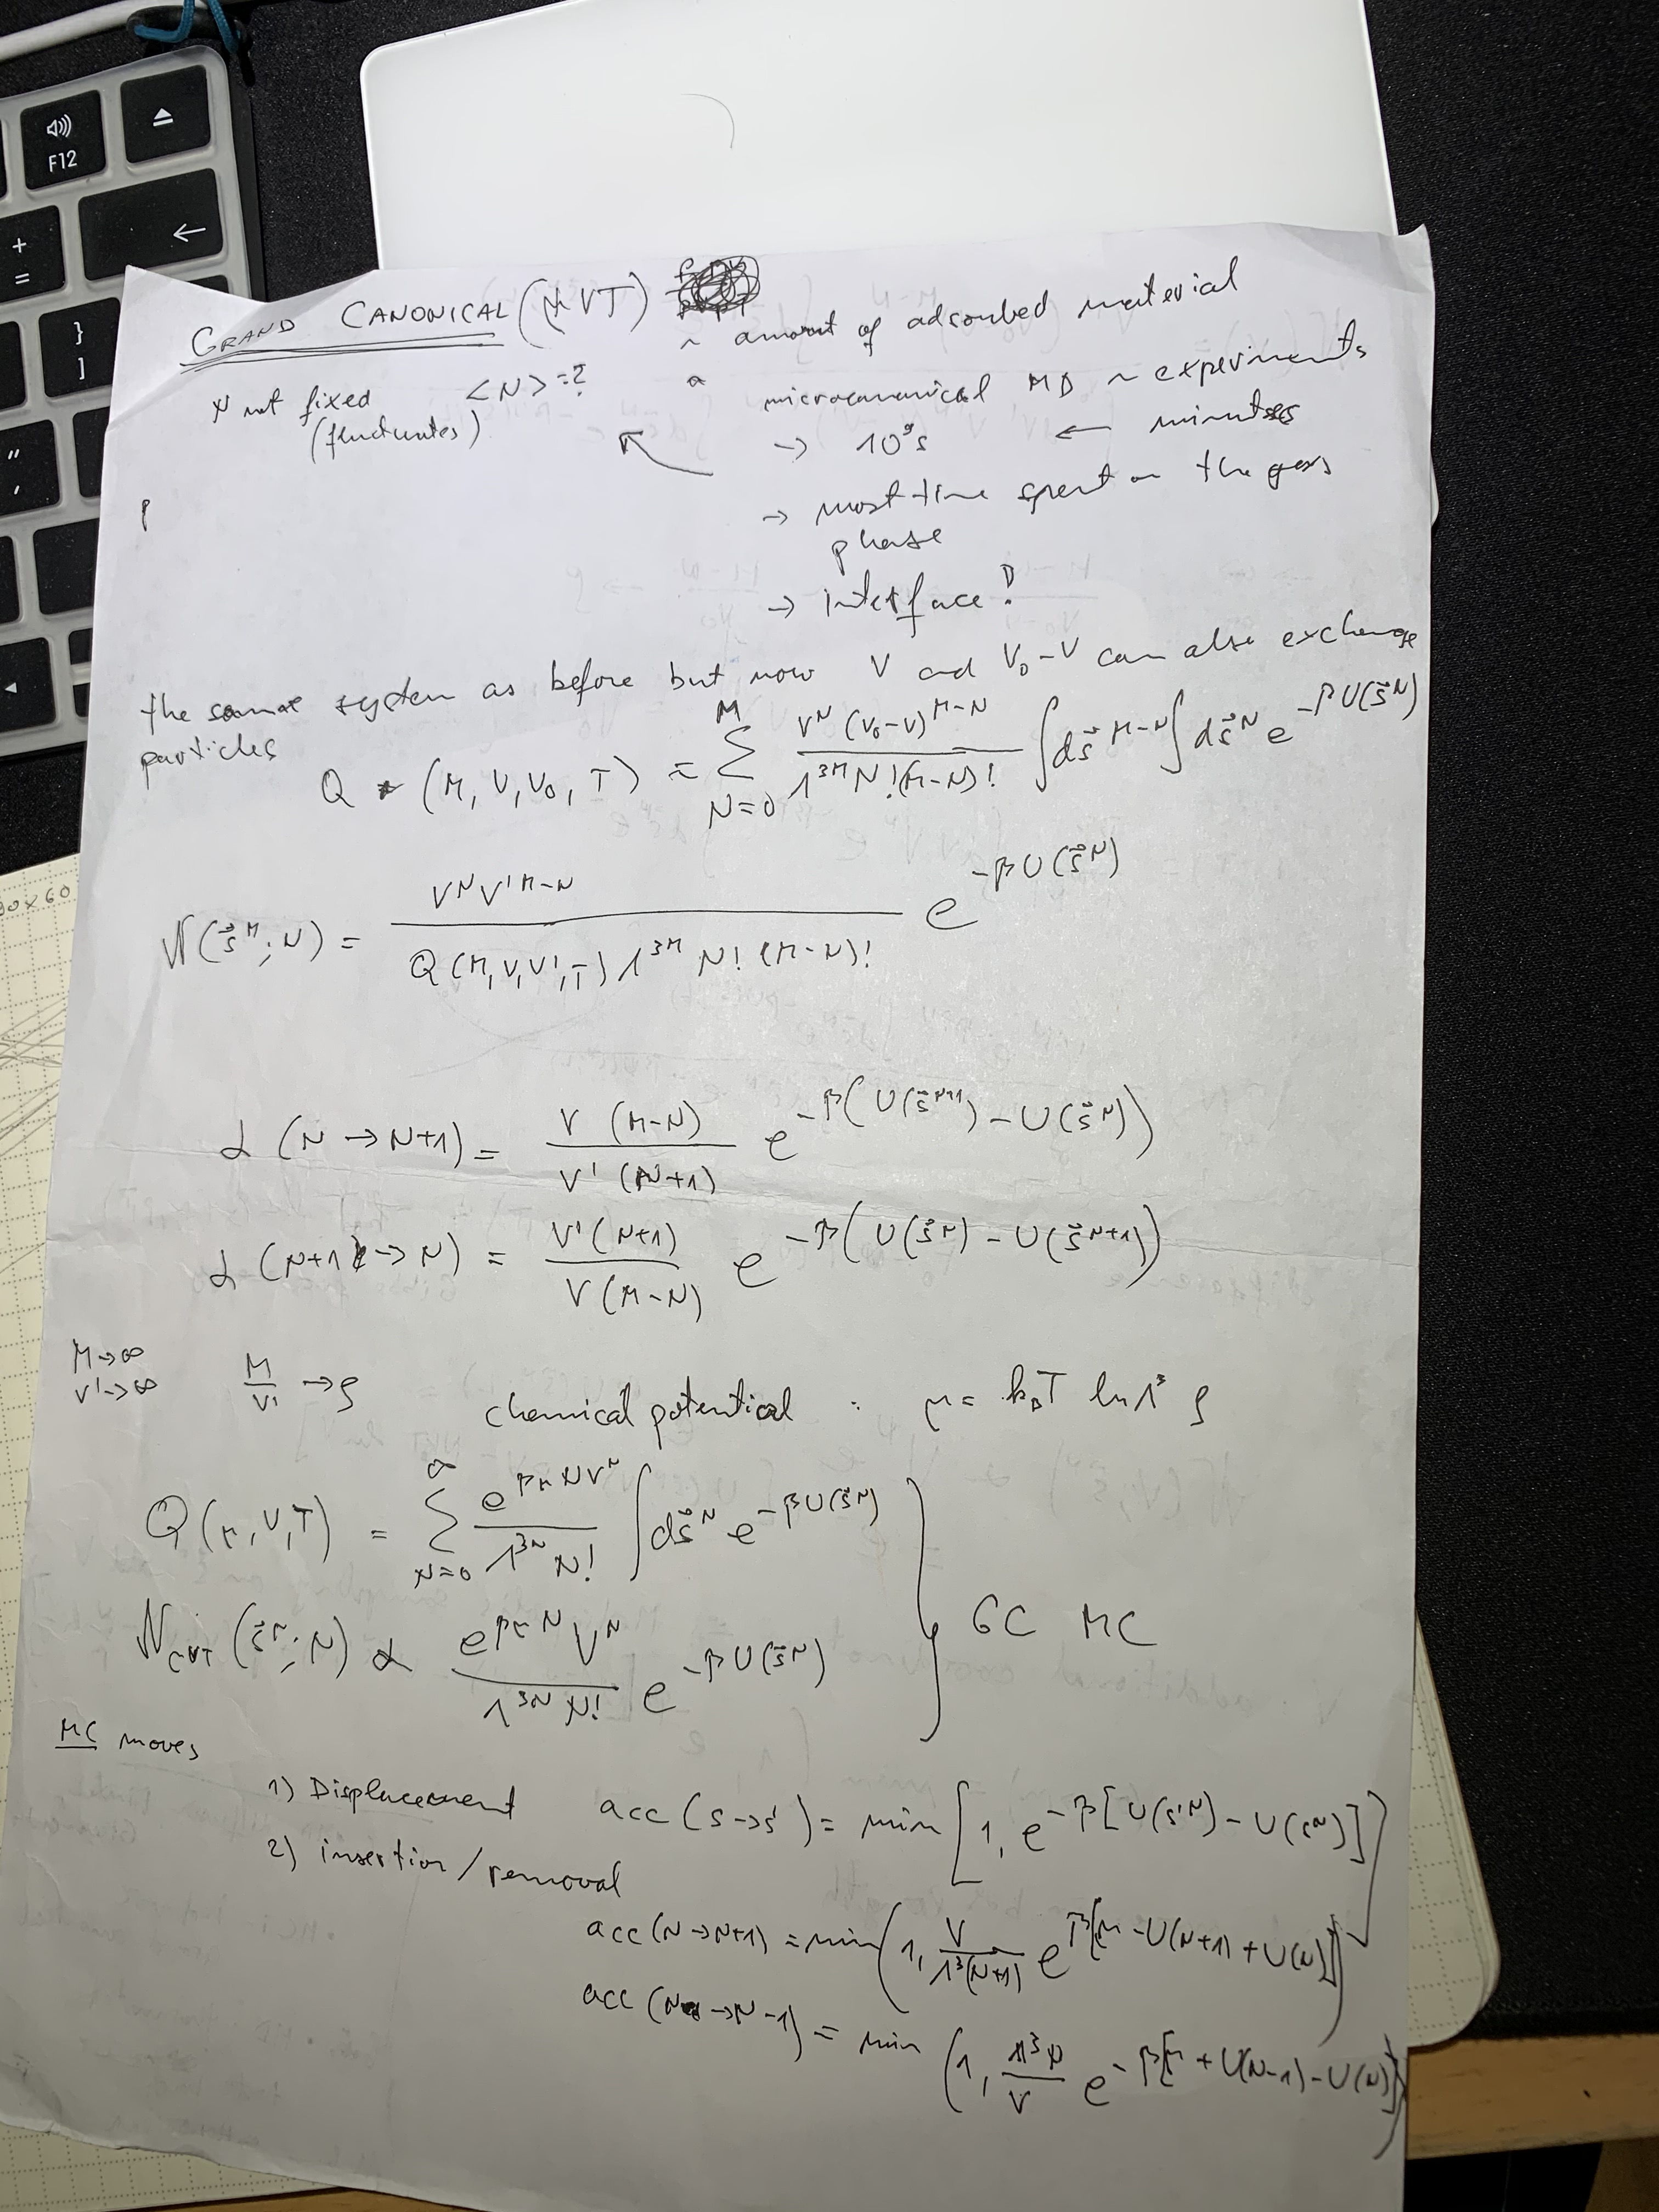 F12
+
=
}
]
"
'
90x60
GRAND CANONICAL (μVT)
~ amount of adsorbed material
N not fixed <N> =?
(fluctuates)
microcanonical MD ~ experiments
→ 10⁹s ← minutes
→ most time spent in the gas
phase
→ interface!
the same system as before but now V and V₀-V can also exchange
particles
Q (M, V, V₀, T) = Σ_{N=0}^{M} V^N (V₀-V)^{M-N} / (Λ^{3M} N! (M-N)!) ∫ds⃗^{M-N} ∫ds⃗^N e^{-βU(s⃗^N)}
N(s⃗^M; N) = V^N V'^{M-N} / (Q(M,V,V',T) Λ^{3M} N! (M-N)!) e^{-βU(s⃗^N)}
α (N → N+1) = V (M-N) / (V' (N+1)) e^{-β(U(s⃗^{N+1}) - U(s⃗^N))}
α (N+1 → N) = V' (N+1) / (V (M-N)) e^{-β(U(s⃗^N) - U(s⃗^{N+1}))}
M→∞
V'→∞ M/V' → ρ
chemical potential : μ = k_BT ln Λ³ ρ
Q (μ,V,T) = Σ_{N=0}^{∞} e^{βμN} V^N / (Λ^{3N} N!) ∫ds⃗^N e^{-βU(s⃗^N)}
N_{μVT} (s⃗^N; N) α e^{βμN} V^N / (Λ^{3N} N!) e^{-βU(s⃗^N)}
GC MC
MC moves
1) Displacement acc (s→s') = min [1, e^{-β[U(s'^N) - U(s^N)]}]
2) insertion/removal
acc (N→N+1) = min (1, V / (Λ³(N+1)) e^{β[μ - U(N+1) + U(N)]})
acc (N→N-1) = min (1, Λ³N / V e^{-β[μ + U(N-1) - U(N)]})